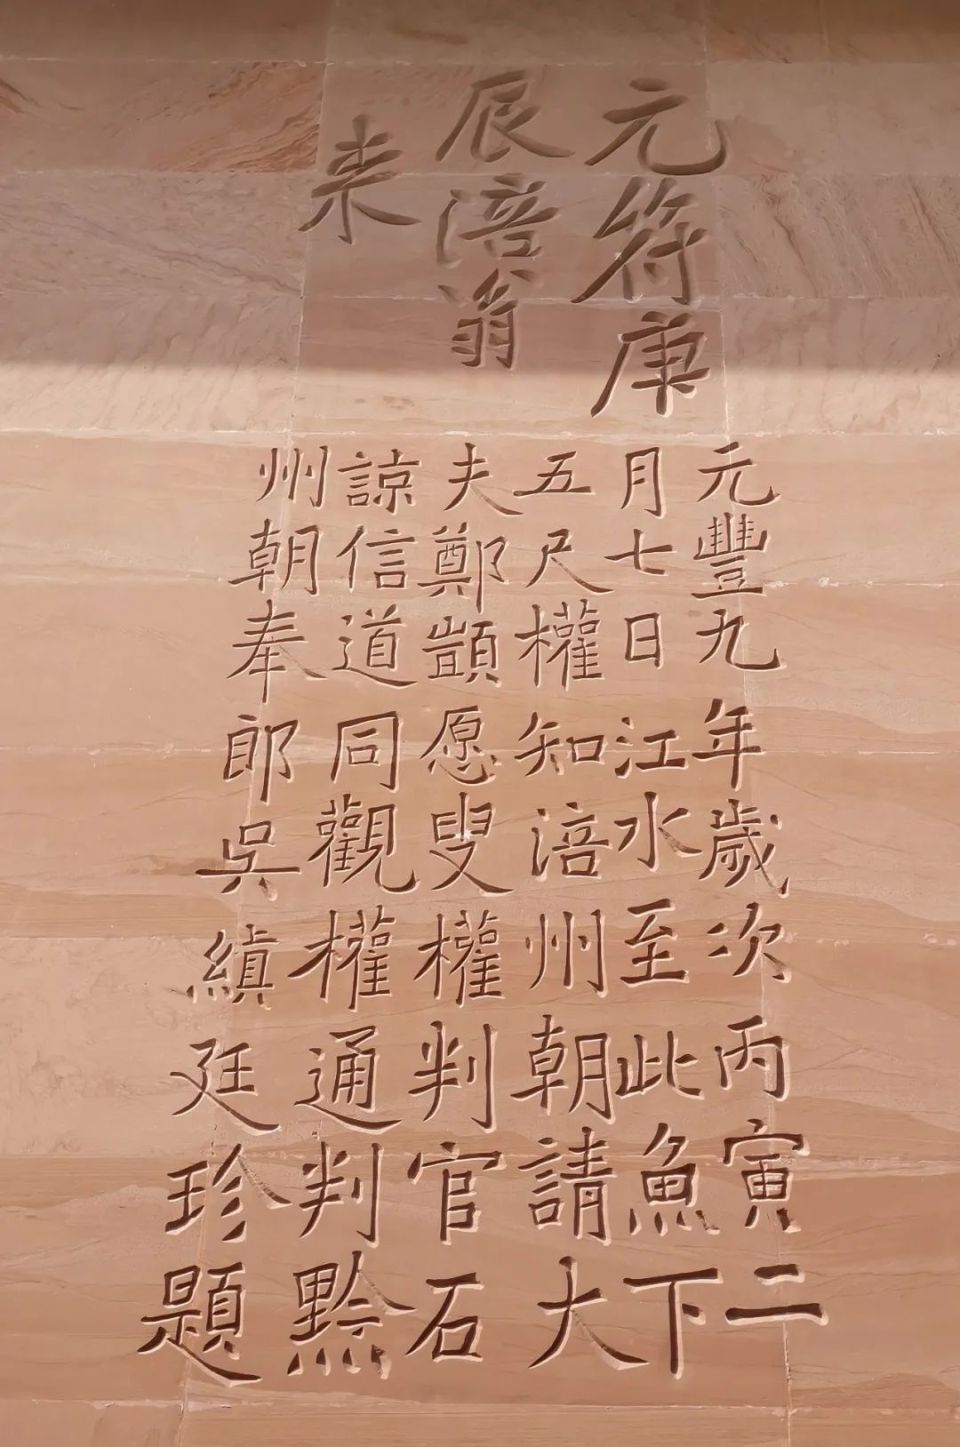 元符庚
辰涪翁
来
元豐九年歲次丙寅二
月七日江水至此魚下
五尺權知涪州朝請大
夫鄭顗愿叟權判官石
諒信道同觀權通判黔
州朝奉郎吳縝廷珍題